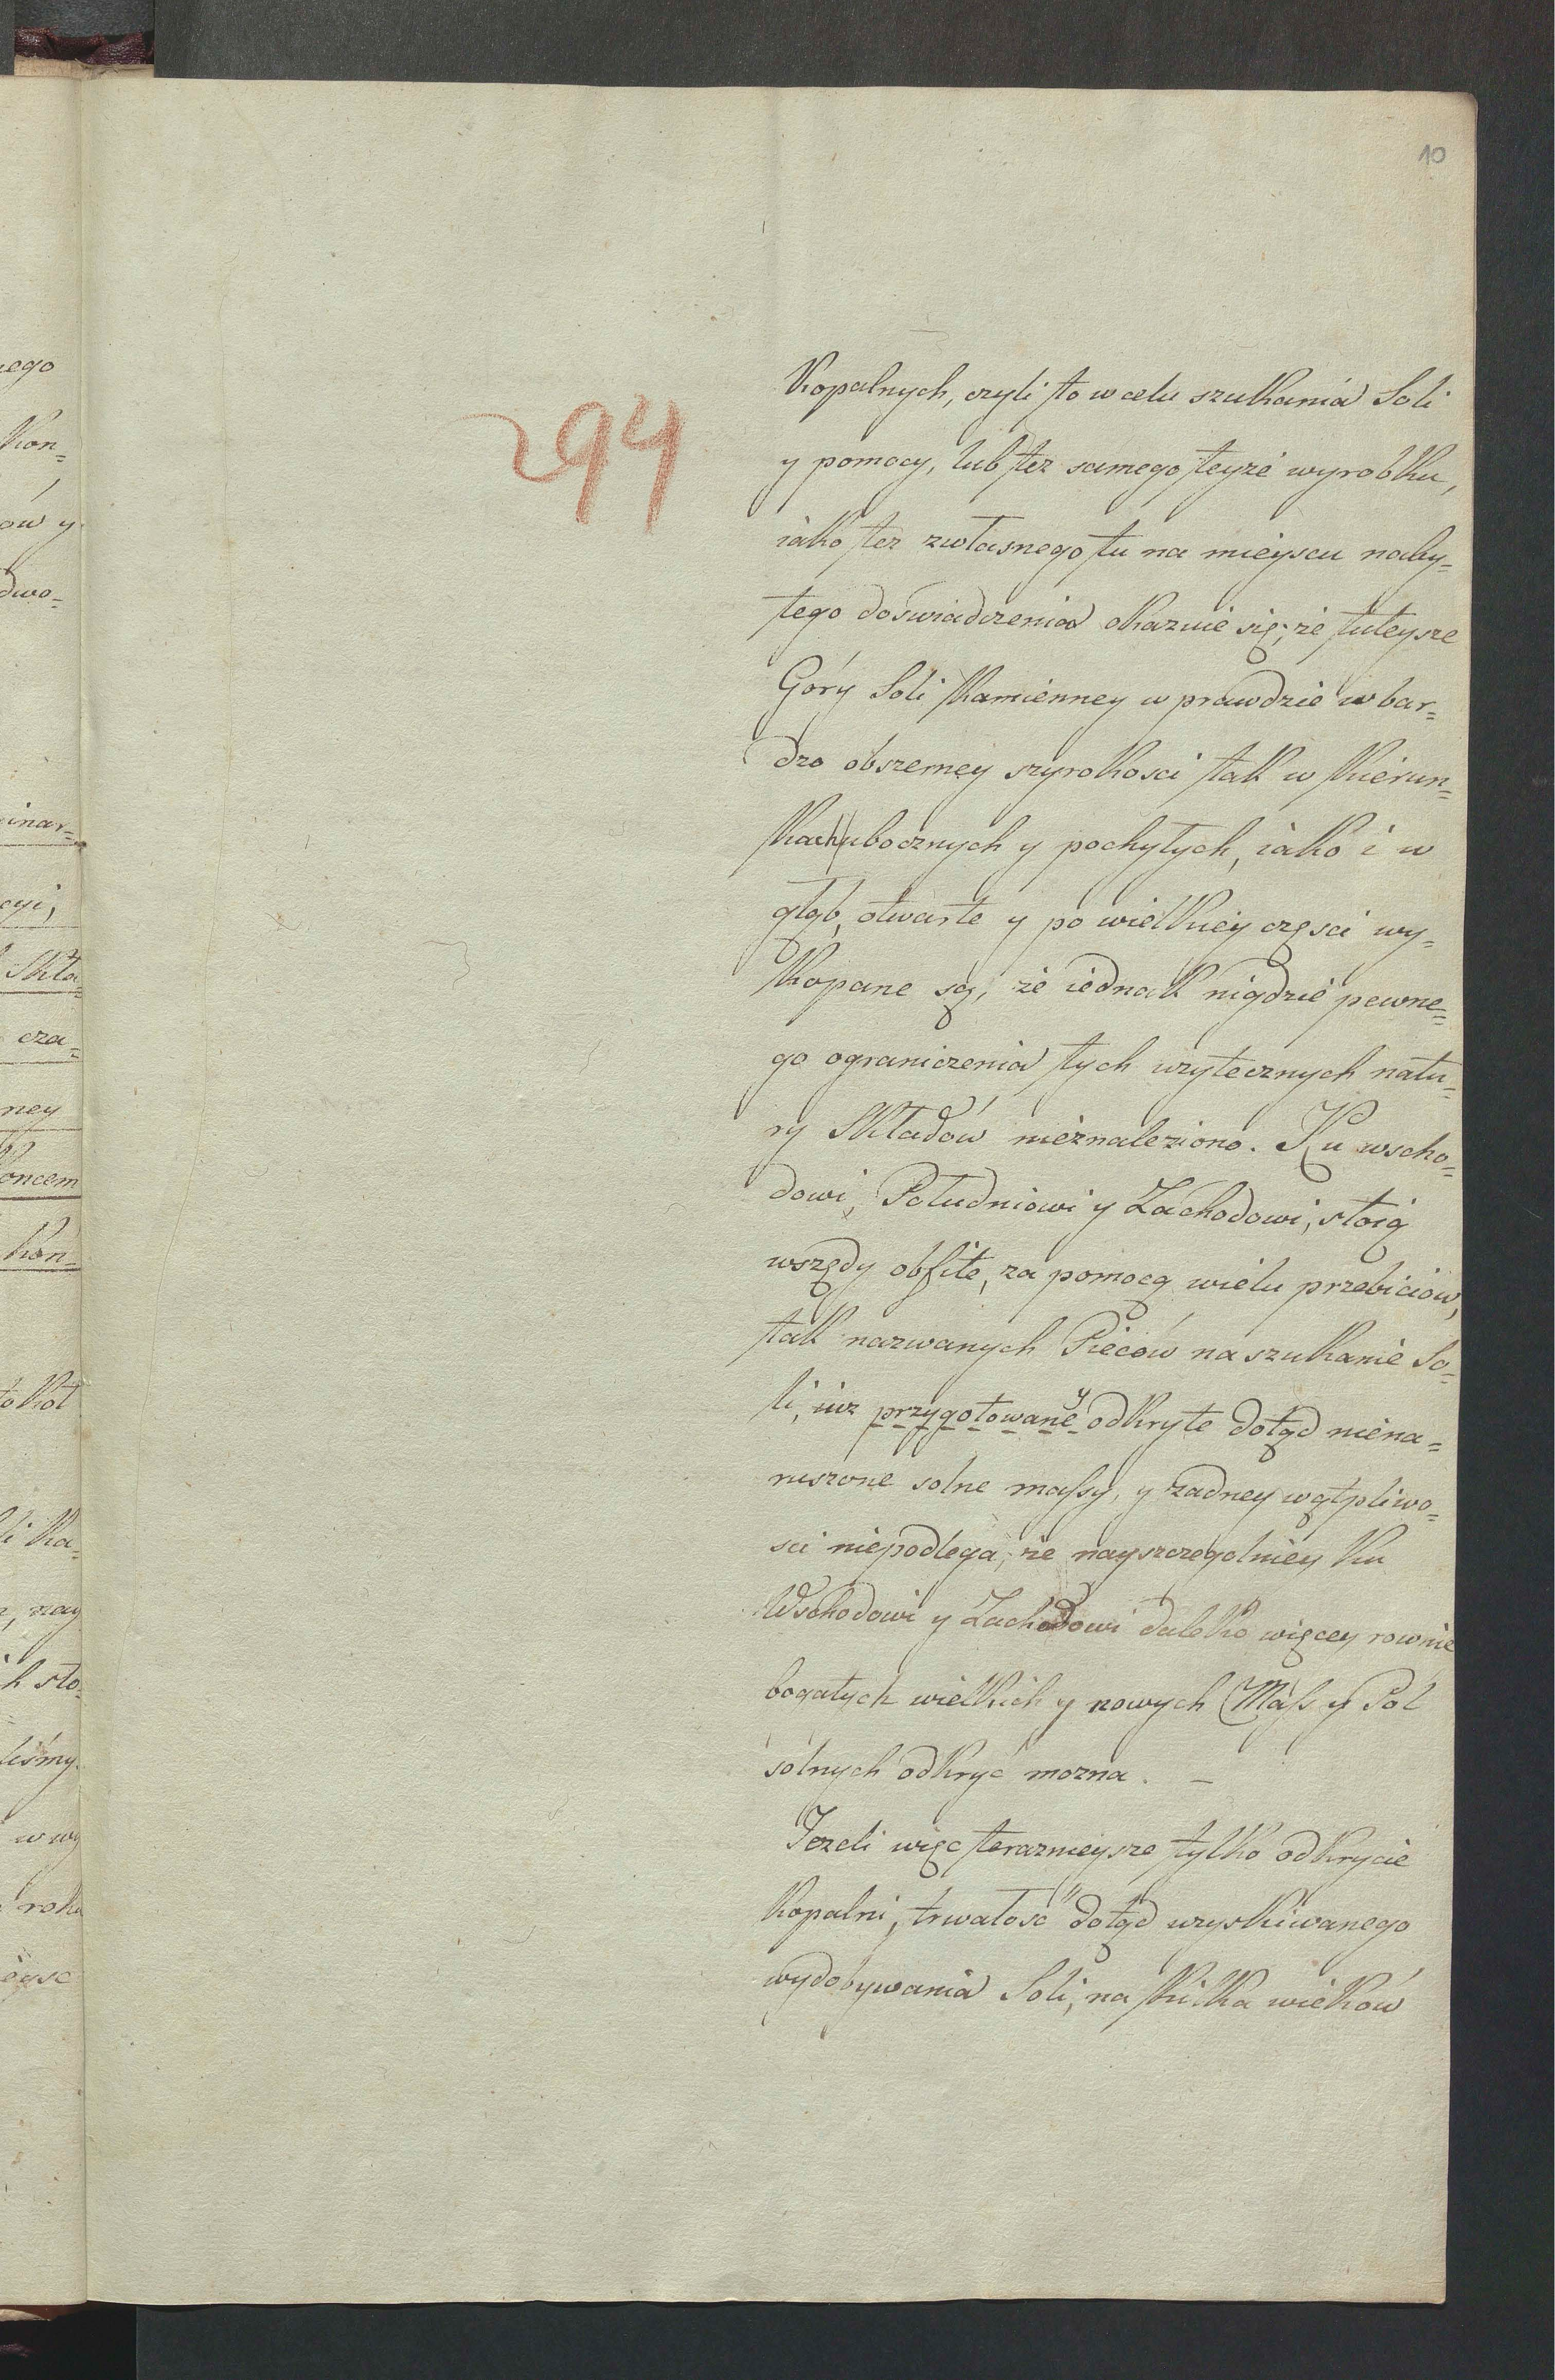 10
294
Kopalnych, czyli to w celu szukania Soli
y pomocy, lub tez samego teyże wyrobku,
iako tez zwłasnego tu na mieyscu naby=
tego doswiadczenia okazuie się, że tuteysze
Góry Soli Kamienney w prawdzie w bar=
dzo obszerney szyrokosci tak w Kierun=
kach ubocznych y pochyłych, iako i w
głąb, otwarte y po wielkiey częsci wy=
kopane są, że iednak nigdzie pewne=
go ograniczenia tych uzytecznych natu=
ry Składów nieznaleziono. Ku wscho=
dowi, Południowi y Zachodowi, stoią
wszędy obfite, za pomocą wielu przebiciów,
tak nazwanych Pieców na szukanie So=
li, iuz przygotowane y odkryte dotąd niena=
ruszone solne massy, y zadney wątpliwo=
sci niepodlega, ze nayszczegolniey ku
Wschodowi y Zachodowi daleko więcey rownie
bogatych wielkich y nowych Mass y Pol
sólnych odkryć mozna. —
Jezeli więc terazmieysze tylko odkrycie
Kopalni, trwałosć dotąd uzyskiwanego
wydobywania Soli, na kilka wieków
ego
Kon=
ów y
dwo=
inar=
cyi,
Skła
cza=
ney
oncem
Kon=
li Ka=
nay
h sto=
liśmy
w wy
roku